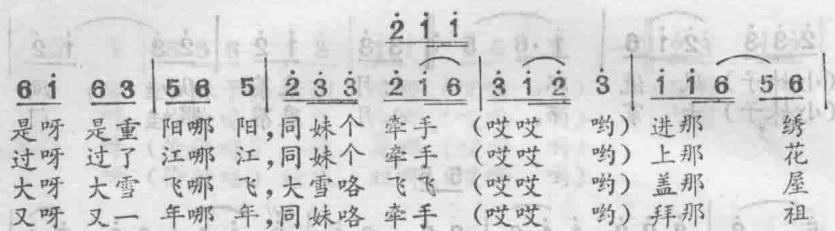 2̇ 1̇ 1̇
6 1̇ 6 3 | 5 6 5 | 2̇ 3̇ 3̇ 2̇ 1̇ 6 | 3̇ 1̇ 2̇ 3̇ | 1̇ 1̇ 6 5 6
是呀 是重 阳哪 阳,同妹个 牵手 (哎哎 哟) 进那 绣
过呀 过了 江哪 江,同妹个 牵手 (哎哎 哟) 上那 花
大呀 大雪 飞哪 飞,大雪咯 飞飞 (哎哎 哟) 盖那 屋
又呀 又一 年哪 年,同妹咯 牵手 (哎哎 哟) 拜那 祖